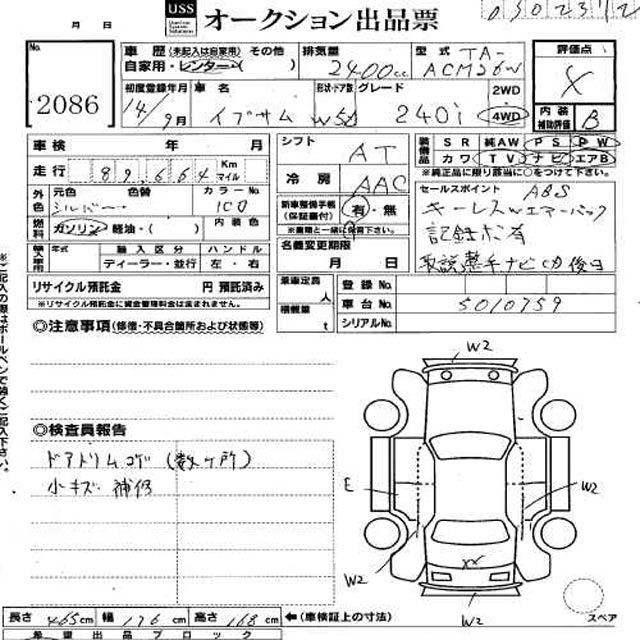 USS オークション出品票
月 日
No. 2086
車歴 (未記入は自家用) その他 自家用・レンター・( )
排気量 2400cc
型式 TA-ACM26W
評価点
内装補助評価 B
初度登録年月 14/9月
車名 イプサム
形状・ドア数 W5D
グレード 240i
2WD 4WD
車検 年 月
走行 89,664 Km マイル
シフト AT
冷房 AAC
装備品 SR 純AW PS PW
カワ TV ナビ エアB
※純正品に限り該当に○をつけて下さい。
外色 元色 シルバー 色替 カラーNo. 1C0
燃料 ガソリン・軽油・( ) 内装色
新車整備手帳(保証書付) 有・無
※書類と一緒に保管下さい。
セールスポイント ABS
キーレスWエアーバック
記録ボ有
取説整手ナビCD後日
輸入車用 年式 輸入区分 ディーラー・並行 ハンドル 左・右
名義変更期限 月 日
リサイクル預託金 円 預託済み
※リサイクル預託金に資金管理料金は含まれません。
乗車定員 人
積載量 t
登録No.
車台No. 5010759
シリアルNo.
◎注意事項(修復・不具合箇所および状態等)
W2
◎検査員報告
ドアトリムコゲ(数ヶ所)
小キズ 補修
E
W2
XX
W2
W2
スペア
長さ 465cm 幅 176cm 高さ 168cm ←(車検証上の寸法)
希望出品ブロック
※ご記入の際はボールペンで強くご記入下さい。